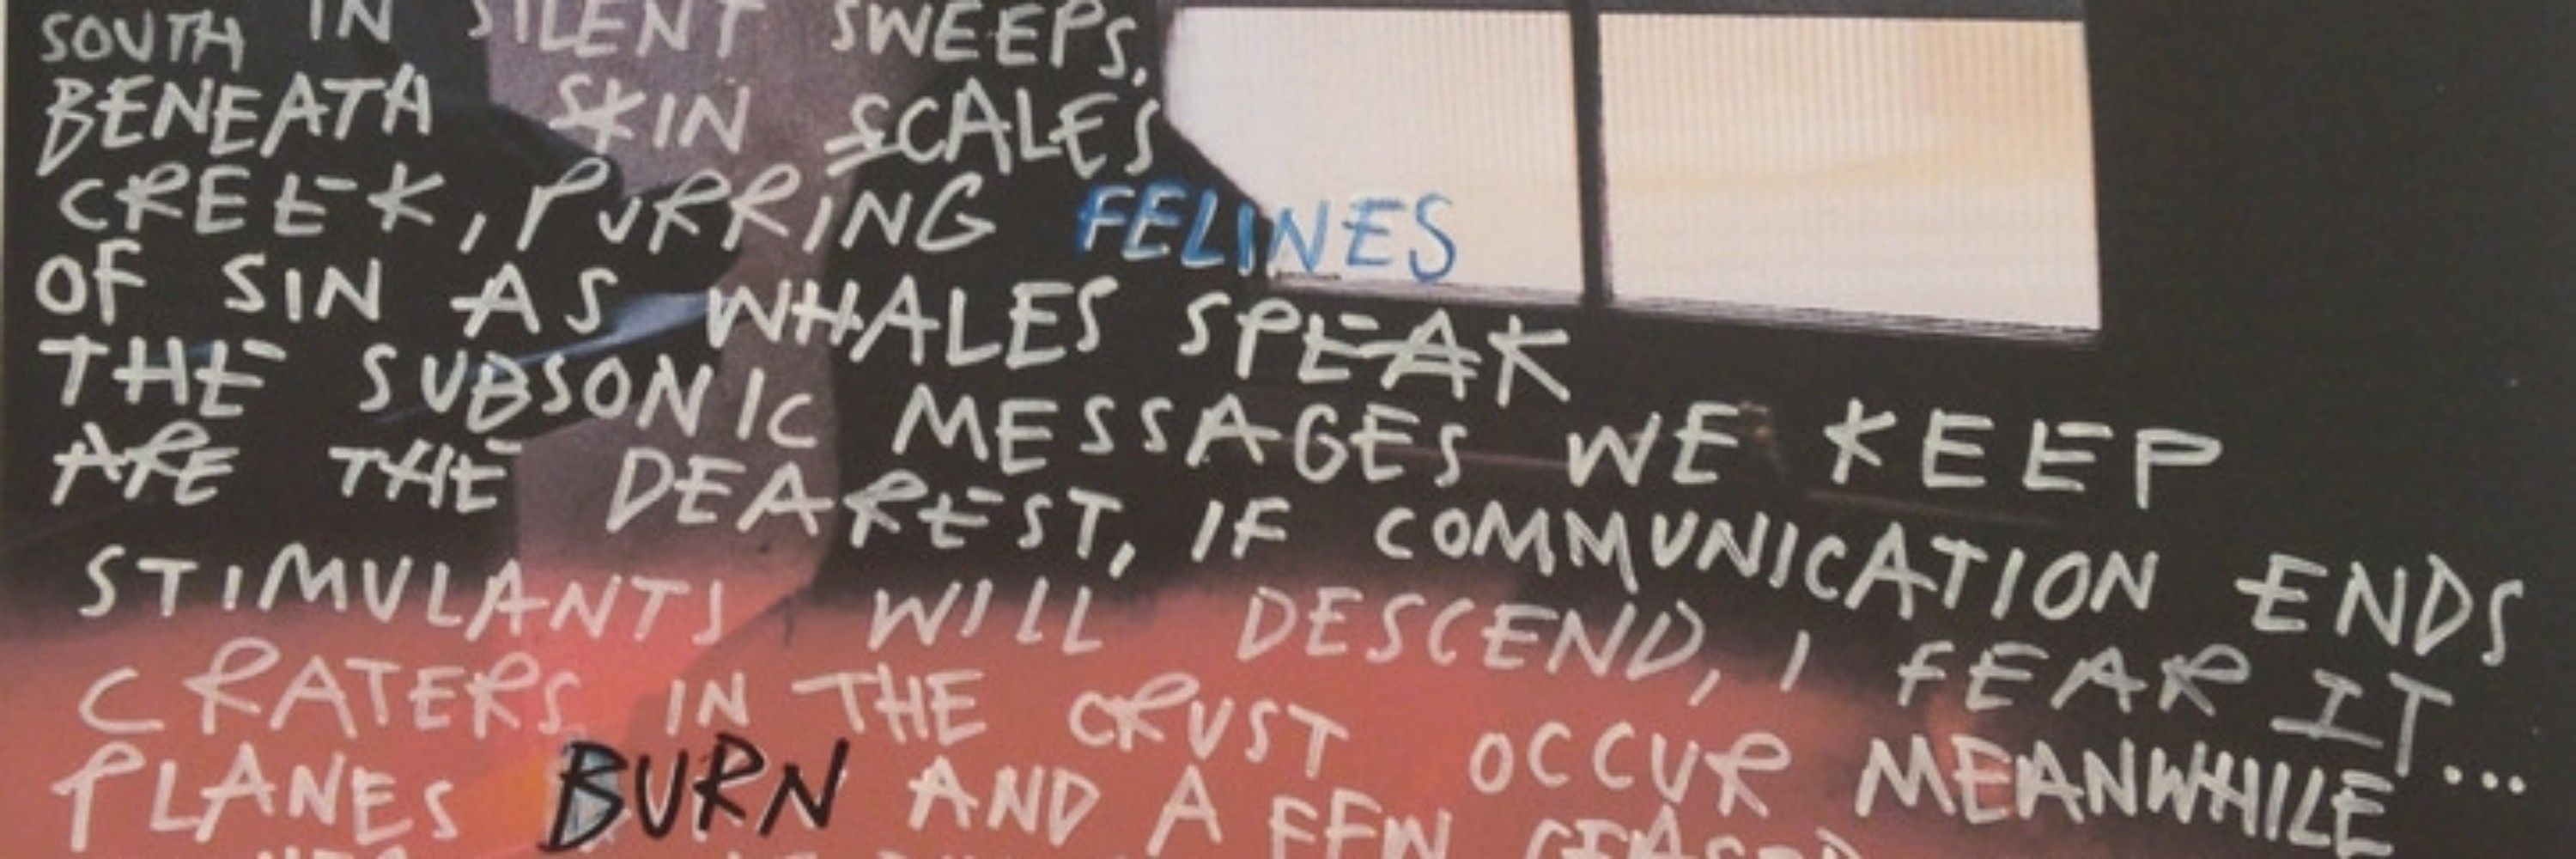 SOUTH IN SILENT SWEEPS.
BENEATH SKIN SCALES
CREEK, PURRING FELINES
OF SIN AS WHALES SPEAK
THE SUBSONIC MESSAGES WE KEEP
ARE THE DEAREST, IF COMMUNICATION ENDS
STIMULANTS WILL DESCEND, I FEAR IT...
CRATERS IN THE CRUST OCCUR MEANWHILE
PLANES BURN AND A FEW CEASED